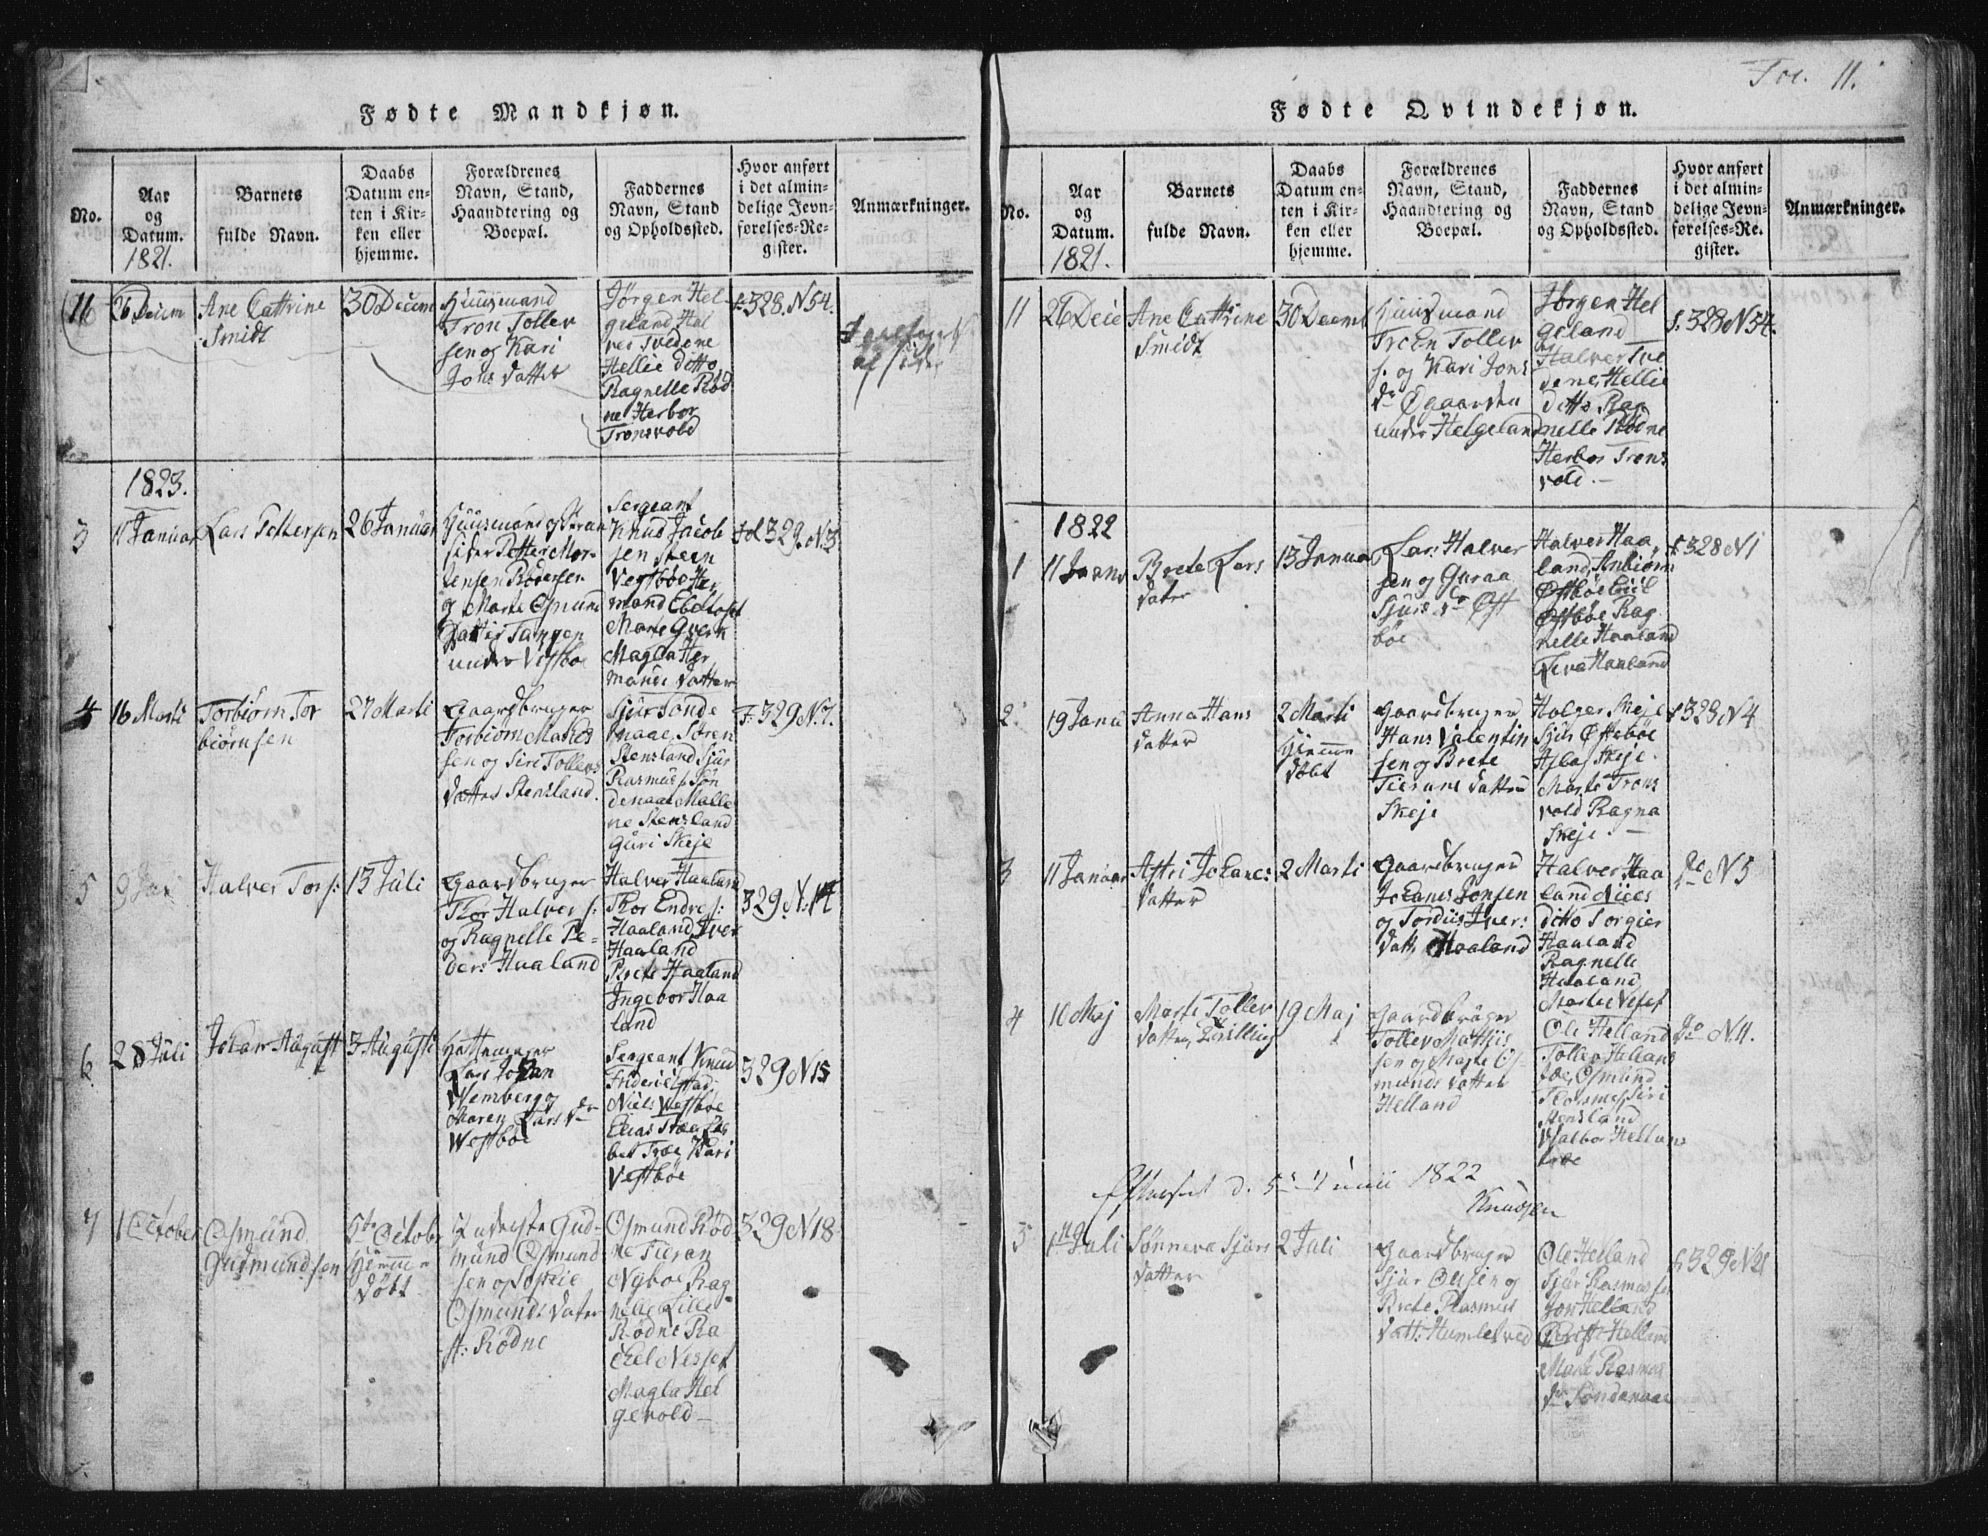 Fødte Mandkjøn.
No.
Aar
og
Datum.
1821.
Barnets
fulde Navn.
Daabs
Datum en-
ten i Kir-
ken eller
hjemme.
Forældrenes
Navn, Stand,
Haandtering og
Boepæl.
Faddernes
Navn, Stand
og Opholdssted.
Hvor anført
i det almin-
delige Jevn-
førelses-Re-
gister.
Anmærkninger.
11
26 Decem
Ane Cattrine
Smidt
30 Decem
Huusmand
Tron Tollev
sen og Kari
Jons datter
Jørgen Hel-
geland Hal
vor Tvedene
Hellie ditto
Ragnelle Rød
ne Herbor
Tronsvold
f. 328 N 54.
1823.
3
11 Januar
Lars Pettersen
26 Januar
Huusmand og
Petter Mor-
tensen
og Marte Osmund
Datter Tangen
under Vestbøe
Sergeant
Knud Jacob
sen Steen
Vestbøe Her
mand
Marte
Magla Her
mands datter
fol 329 N 3
4
16 Marti
Torbiørn Tor
biørnsen
27 Marti
Gaardbruger
Torbiørn
sen og Siri Tollevs
datter Stensland.
Sjur Sonde
naae, Søren
Stensland Sjur
Rasmus s. Søn
denaae Malle
ne Stensland
Guri Skeje
F. 329 N 7.
5
9
Halver Tors:
13 Juli
Gaardbruger
Thor Halvers:
og Ragnelle Pe-
ders Haaland
Halver Haaland
Thor Endres:
Haaland Iver
Haaland
Brete Haaland
Ingebor Haa
land
329 N. 14
6
28 Juli
Johan August
3 Augusti
Hattemager
Lars Johan
Wemberg og
Maren Lars dr
Westbøe
Sergeant Knud
Friderichstad
Niels Westbøe
Elias Træe
bet Træe Kari
Vestbøe
329 N 15
7
1 October
Osmund
Gudmundsen
5te October
Hiemme
døbt
Gud-
mund Osmund
sen og
Osmunds dater
st: Rødne
Osmund Rød
ne
Nybøe Rag
nelle Lille
Rødne Ra
chel Nesset
Magla Hel
gevold
329 N 18
Fol. 11.
Fødte Qvindekjøn.
No.
Aar
og
Datum.
1821.
Barnets
fulde Navn.
Daabs
Datum en-
ten i Kir-
ken eller
hjemme.
Forældrenes
Navn, Stand,
Haandtering og
Boepæl.
Faddernes
Navn, Stand
og Opholdssted.
Hvor anført
i det almin-
delige Jevn-
førelses-Re-
gister.
Anmærkninger.
11
26 Dece
Ane Cattrine
Smidt
30 Decemb
Huusmand
Tron Tollev
s. og Kari Jons
dr Øgaarden
under Helgeland
Jørgen Hel
geland
Halver Tve
dene, Hellie
ditto Rag
nelle Rødne
Herbor Trons
vold.
f. 328 N 54.
1822
1
11 Janua
Brete Lars
dater
13 Januar
Lars Halver
sen og Guraa
Sjurs dr Øst
bøe
Halver Haa
land, Anbiørn
Østbøe
Østbøe Rag
nelle Haaland
Haaland
f. 328 N 1
2.
19 Janu
Anna Hans
datter
2 Marti
Hiemme
døbt
Gaardbruger
Hans Valentin
sen og Brete
datter
Skeje
Holger Skeje
Sjur Østebøe
Skeje.
Marte Trons
vold Ragna
Skeje.
f 328 N 4
3
11 Januar
Astri Johanes
datter
2 Marti
Gaardbruger
Johanes Jonsen
og Tordiis Ivers
datt. Haaland
Halver Haa
land Niels
ditto Torgier
Haaland
Ragnelle
Haaland
do N 5
4
10 Maj
Marte Tollev
datter, Tvilling
19 Maj
Gaardbruger
Tollev Mathis
sen og Marte Os-
munds datter
Helland
Ole Helland
Tollev Hellans
Osmund
Siri
Stensland
Valbor Hellans
do N 11.
Efterseet d. 5t Junii 1822
Knudsen
5
1st Juli
Sønneva Sjurs
datter
2 Juli
Gaardbruger
Sjur Olesen og
Brete Rasmus
datt: Humlesved
Ole Helland
Sjur Rasmussen
Jon Helland
Helland
Marte Rasmus
dr Søndenaae
f 329 N 21